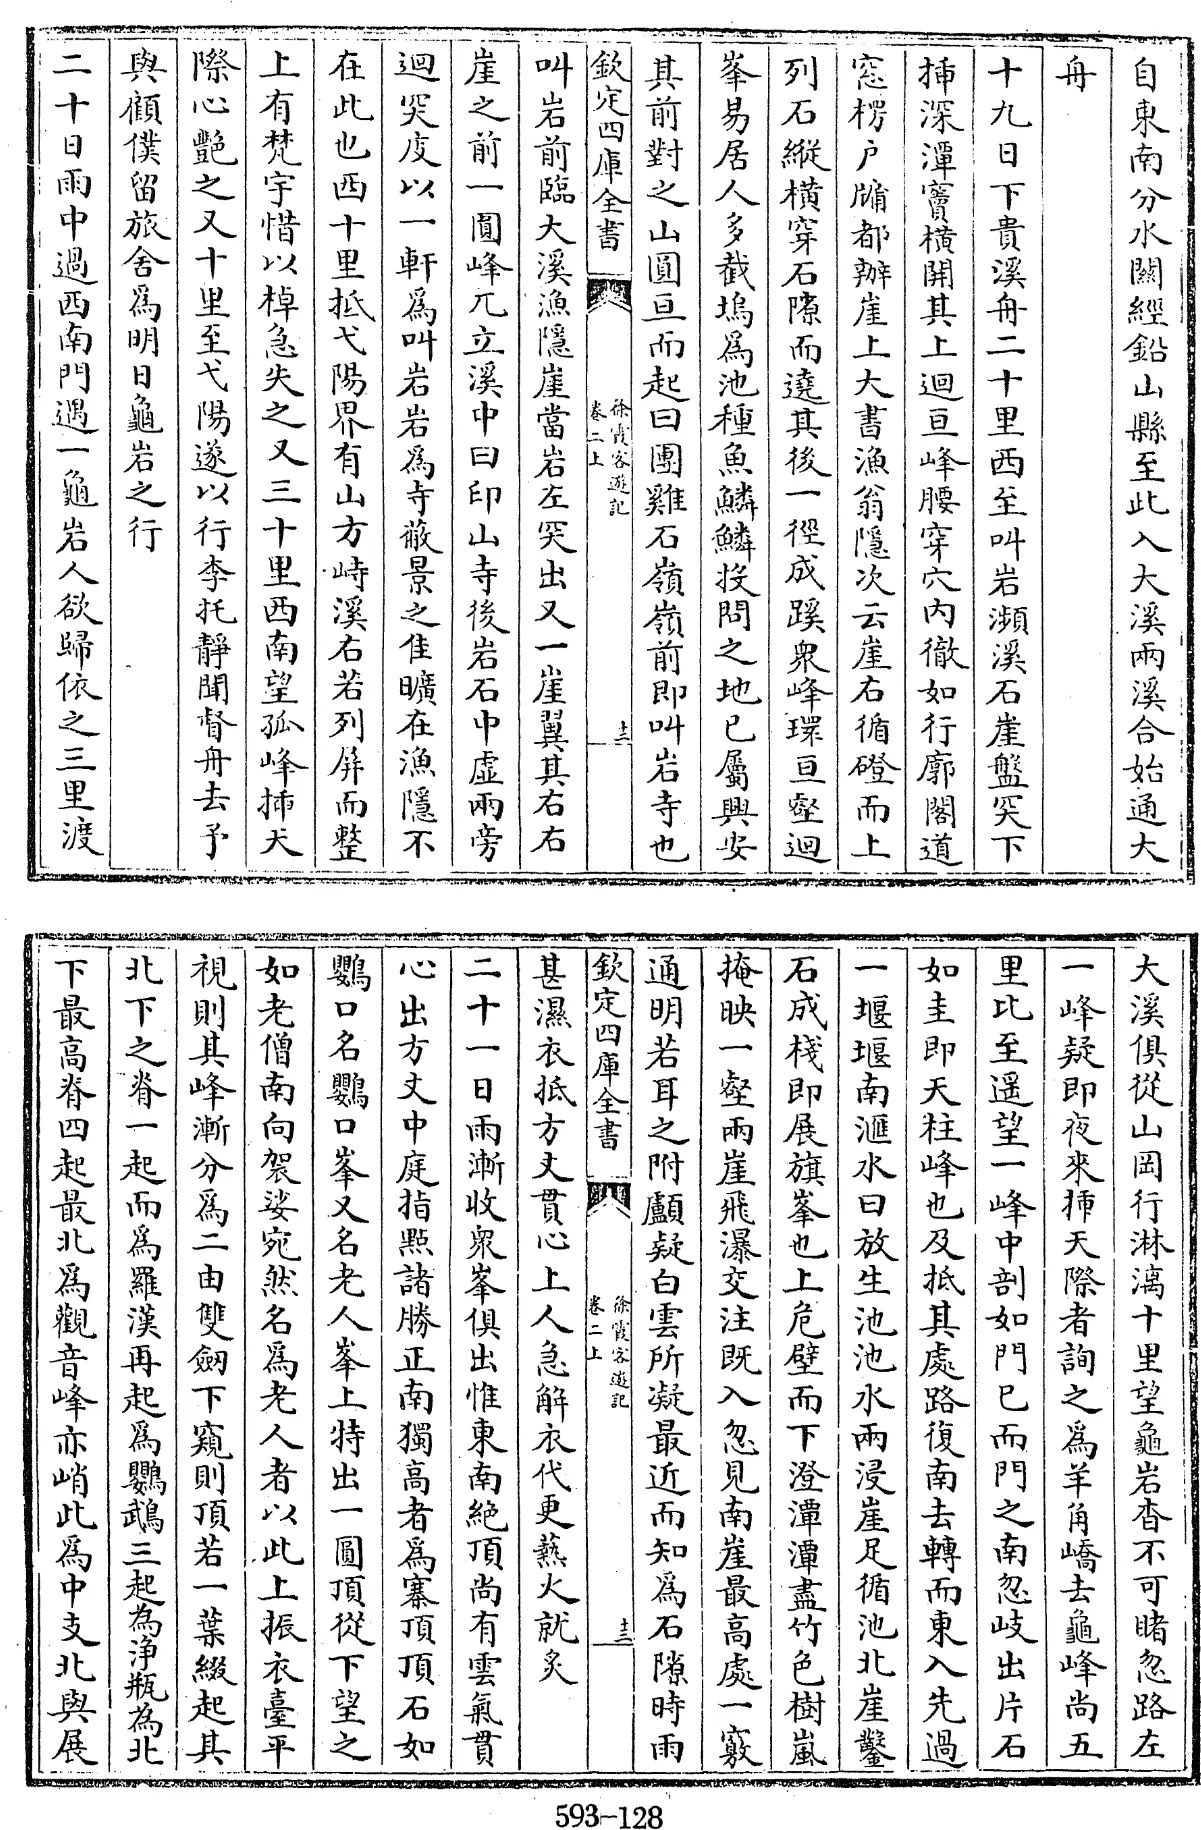 自東南分水關經鉛山縣至此入大溪兩溪合始通大
舟
十九日下貴溪舟二十里西至叫岩瀕溪石崖盤突下
揷深潭竇橫開其上迴亘峰腰穿穴内徹如行廓閣道
窓楞户牖都辦崖上大書漁翁隠次云崖右循磴而上
列石縱橫穿石隙而遶其後一徑成蹊衆峰環亘壑迴
峯易居人多截塢爲池種魚鱗鱗投問之地已屬興安
其前對之山圓亘而起曰團雞石嶺嶺前即叫岩寺也
欽定四庫全書
徐霞客遊記
卷二上
十三
叫岩前臨大溪漁隱崖當岩左突出又一崖翼其右右
崖之前一圓峰兀立溪中曰印山寺後岩石中虛兩旁
迴突度以一軒爲叫岩岩爲寺蔽景之佳曠在漁隱不
在此也西十里抵弋陽界有山方峙溪右若列屏而整
上有梵宇惜以棹急失之又三十里西南望孤峰揷天
際心艷之又十里至弋陽遂以行李托靜聞督舟去予
與顧僕留旅舍爲明日龜岩之行
二十日雨中過西南門遇一龜岩人欲歸依之三里渡
大溪俱從山岡行淋漓十里望龜岩杳不可睹忽路左
一峰疑即夜來揷天際者詢之爲羊角嶠去龜峰尚五
里比至遥望一峰中剖如門已而門之南忽岐出片石
如圭即天柱峰也及抵其處路復南去轉而東入先過
一堰堰南滙水曰放生池池水兩浸崖足循池北崖鑿
石成棧即展旗峯也上危壁而下澄潭潭盡竹色樹嵐
掩映一壑兩崖飛瀑交注既入忽見南崖最高處一竅
通明若耳之附顱疑白雲所凝最近而知爲石隙時雨
欽定四庫全書
徐霞客遊記
卷二上
十三
甚濕衣抵方丈貫心上人急解衣代更爇火就炙
二十一日雨漸收衆峯俱出惟東南絶頂尚有雲氣貫
心出方丈中庭指點諸勝正南獨高者爲寨頂頂石如
鸚口名鸚口峯又名老人峯上特出一圓頂從下望之
如老僧南向袈裟宛然名爲老人者以此上振衣臺平
視則其峰漸分爲二由雙劔下窺則頂若一葉綴起其
北下之脊一起而爲羅漢再起爲鸚鵡三起為淨瓶為北
下最高脊四起最北爲觀音峰亦峭此爲中支北與展
593-128